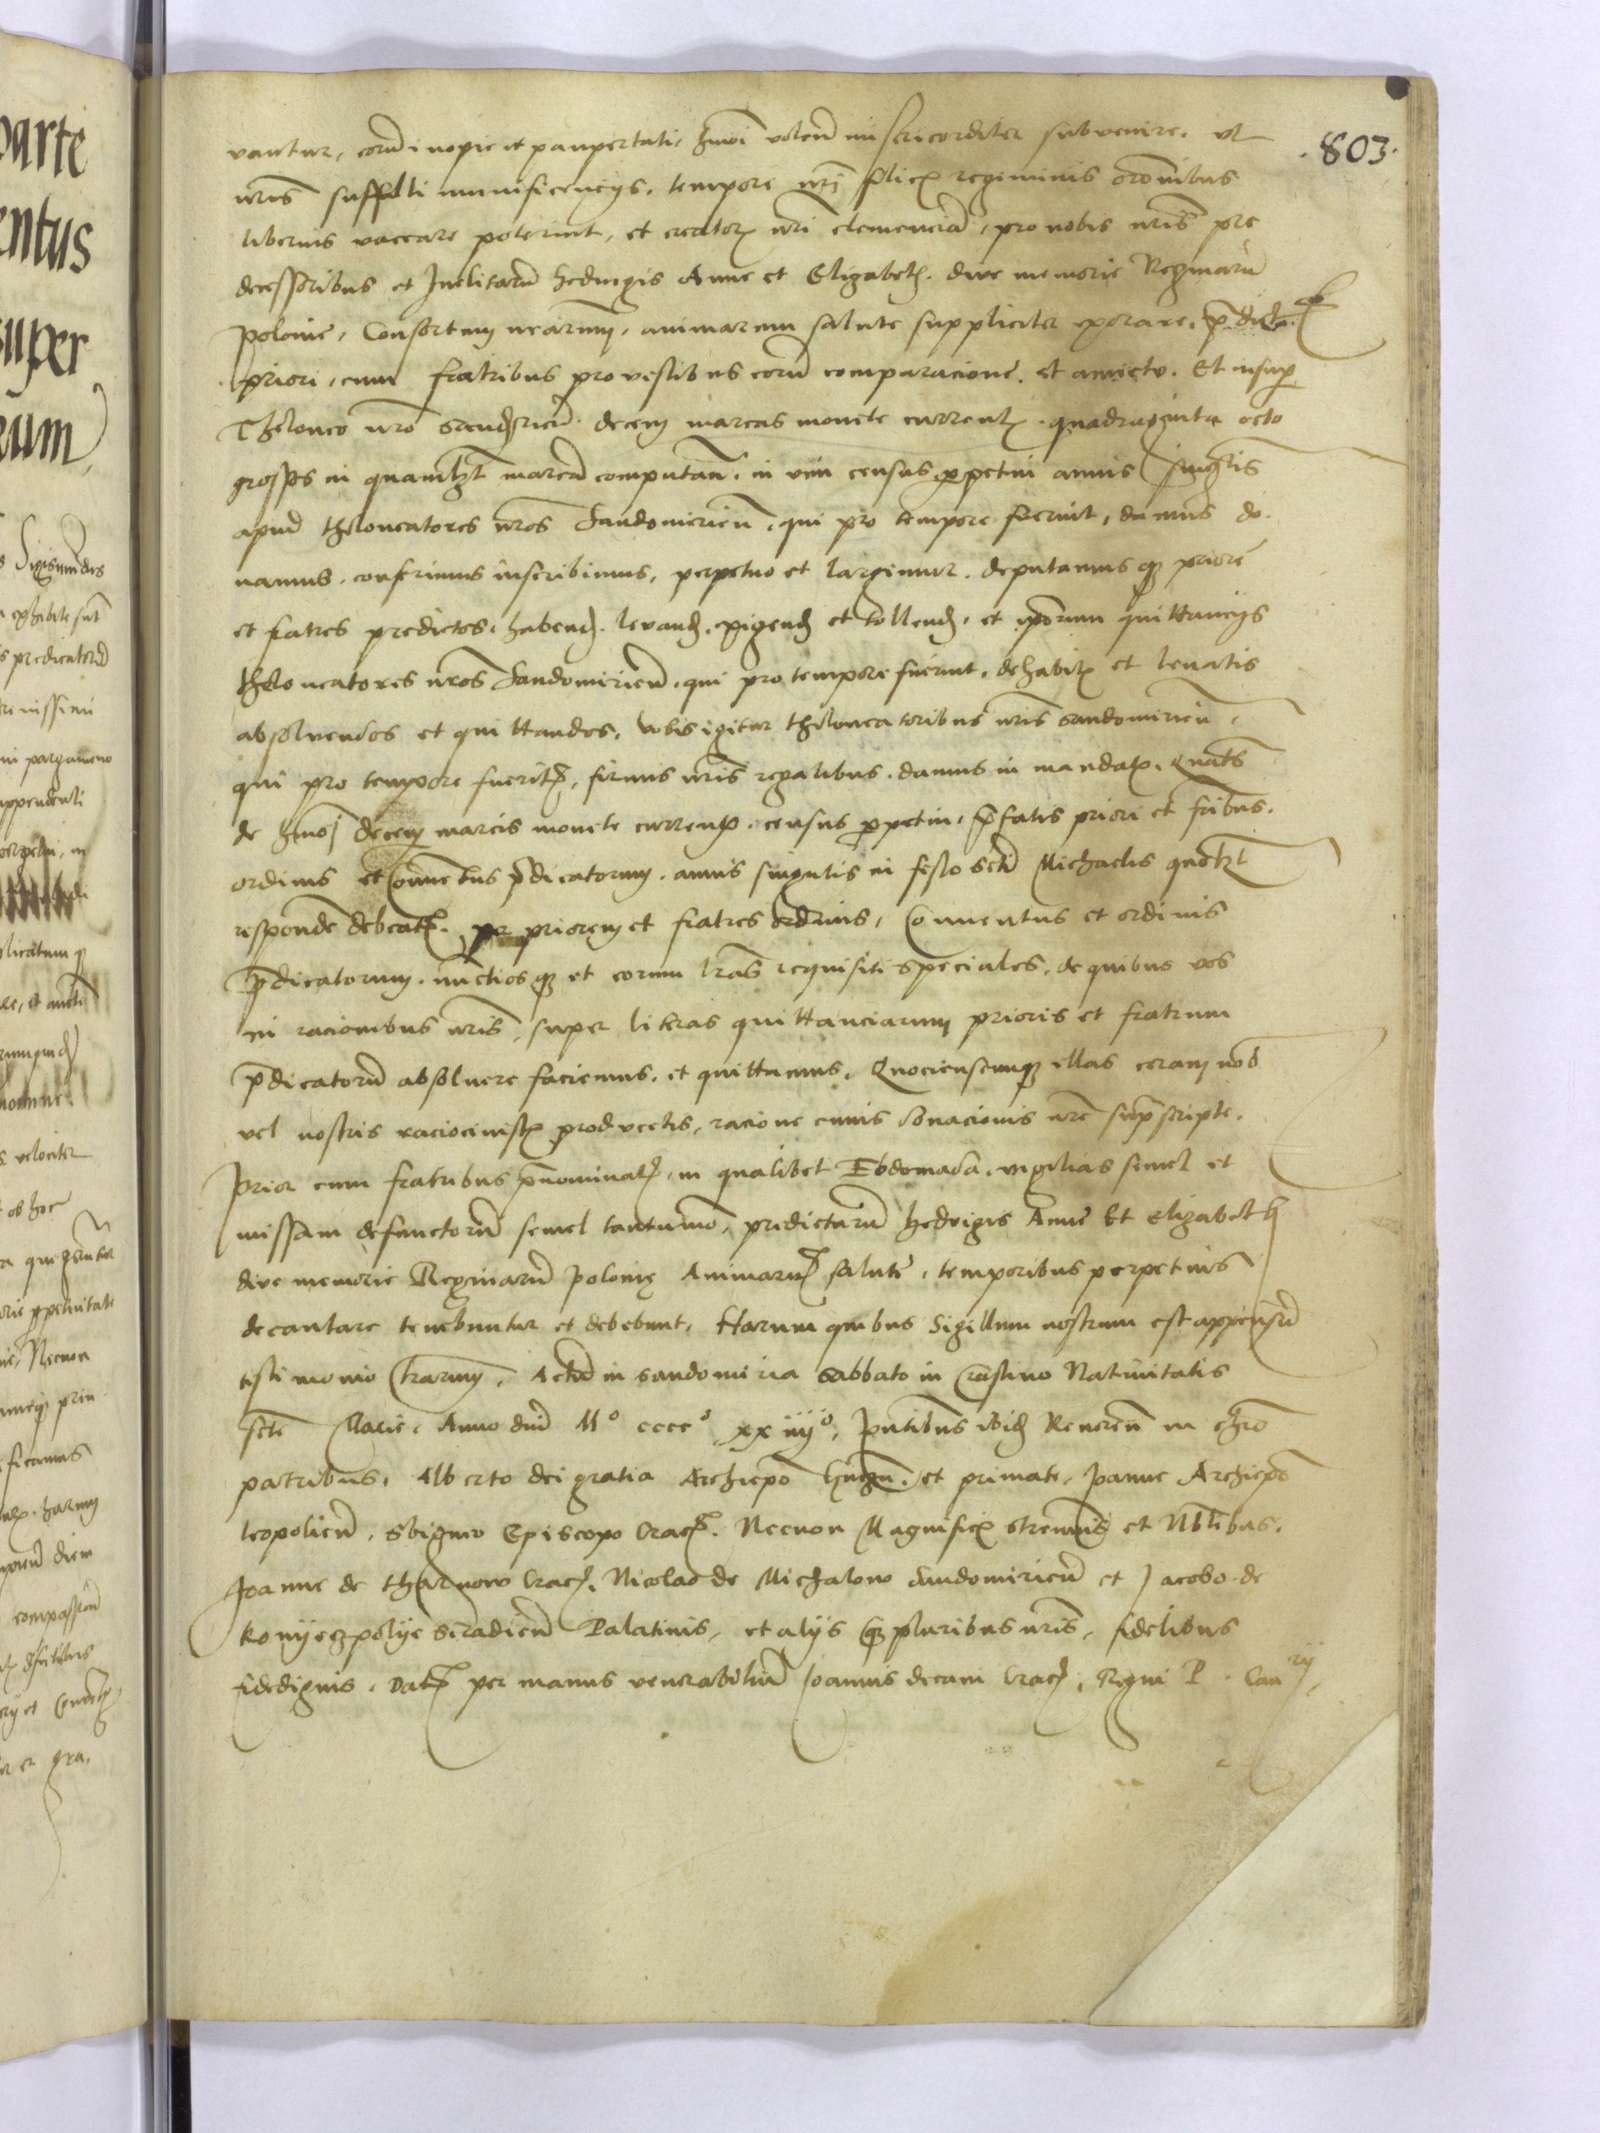 803.
vantur, eorum inopie et paupertati, hmoi volen misericorditer subvenire. vt
nris suffulti munificencijs. tempore nri felicis regiminis oronibus
liberius vaccare poterint, et creatoris nri clemenciam, pro nobis nris pre
decessoribus et Inclitarum hedwigis Anne et Elizabeth. dive memorie Reginarum
polonie, Consortum nearum, animarum salute suppliciter exorare. pdicto
priori, cum fratribus pro vestibus eorum comparacione. et amictu. Et insup
Theloneo nro decem marcas monete currentis. quadraginta octo
grossos in quamlzt marcam computan. in vim census perpetui annis singlis
apud theloneatores nros Sandomirien, qui pro tempore fuerint, damus do-
namus. conferimus inscribimus, perpetuo et largimur. deputamus q priorem
et fratres predictos. habend. levand. exigend et tollend, et ipsorum quittancijs
theloneatores nros Sandomirien. qui pro tempore fuerint. de habitis et levatis
absolvendos et quittandos, vobis igitur theloneatoribus nris sandomirien,
qui pro tempore fueritis, firmis nris regalibus. damus in mandatis. Quats
de hmoj decem marcis monete currentis. census perpetui, pfatis priori et fribus.
ordinis et Conventus pdicatorum. annis singulis in festo scti Michaelis quolzt
respondere debeatis. per priorem et fratres ordinis, Conventus et ordinis
pdicatorum. nunctios q et eorum lras requisiti speciales. de quibus vos
in racionibus nris, super literas quittanciarum prioris et fratrum
pdicatorum absolvere faciemus. et quittamus. Quocienscunq illas coram nob
vel nostris raciocinistis producetis, racione cuius donacionis nre suprascripte.
prior cum fratribus pnominatis, in qualibet Ebdomada. vigilias semel et
missam defunctorum semel tantummo, predictarum hedvigis Anne Et elizabeth
dive memorie Reginarum polonię Animarum salute, temporibus perpetuis
decantare tenebuntur et debebunt. Harum quibus Sigillum nostrum est appensum
testimonio lrarum, Actum in sandomiria sabbato in Crastino Nativitatis
scte Marie. Anno dni Mo cccco xx iiijo, pntibus ibid Reveren in chro
patribus. Alberto dei gratia Archiepo Gnezn. et primate, Ioanne Archiepo
leopolien. Sbigneo Episcopo Crac. Necnon Magnificis strenuis et Nblibus.
Ioanne de tharnow Crac. Nicolao de Michalow Sandomirien et Jacobo de
konyeczpolye Siradien Palatinis, et alijs q pluribus nris, fidelibus
fidedignis. Dat per manus venerabilium Ioannis decani Crac. Regni P. Can rij